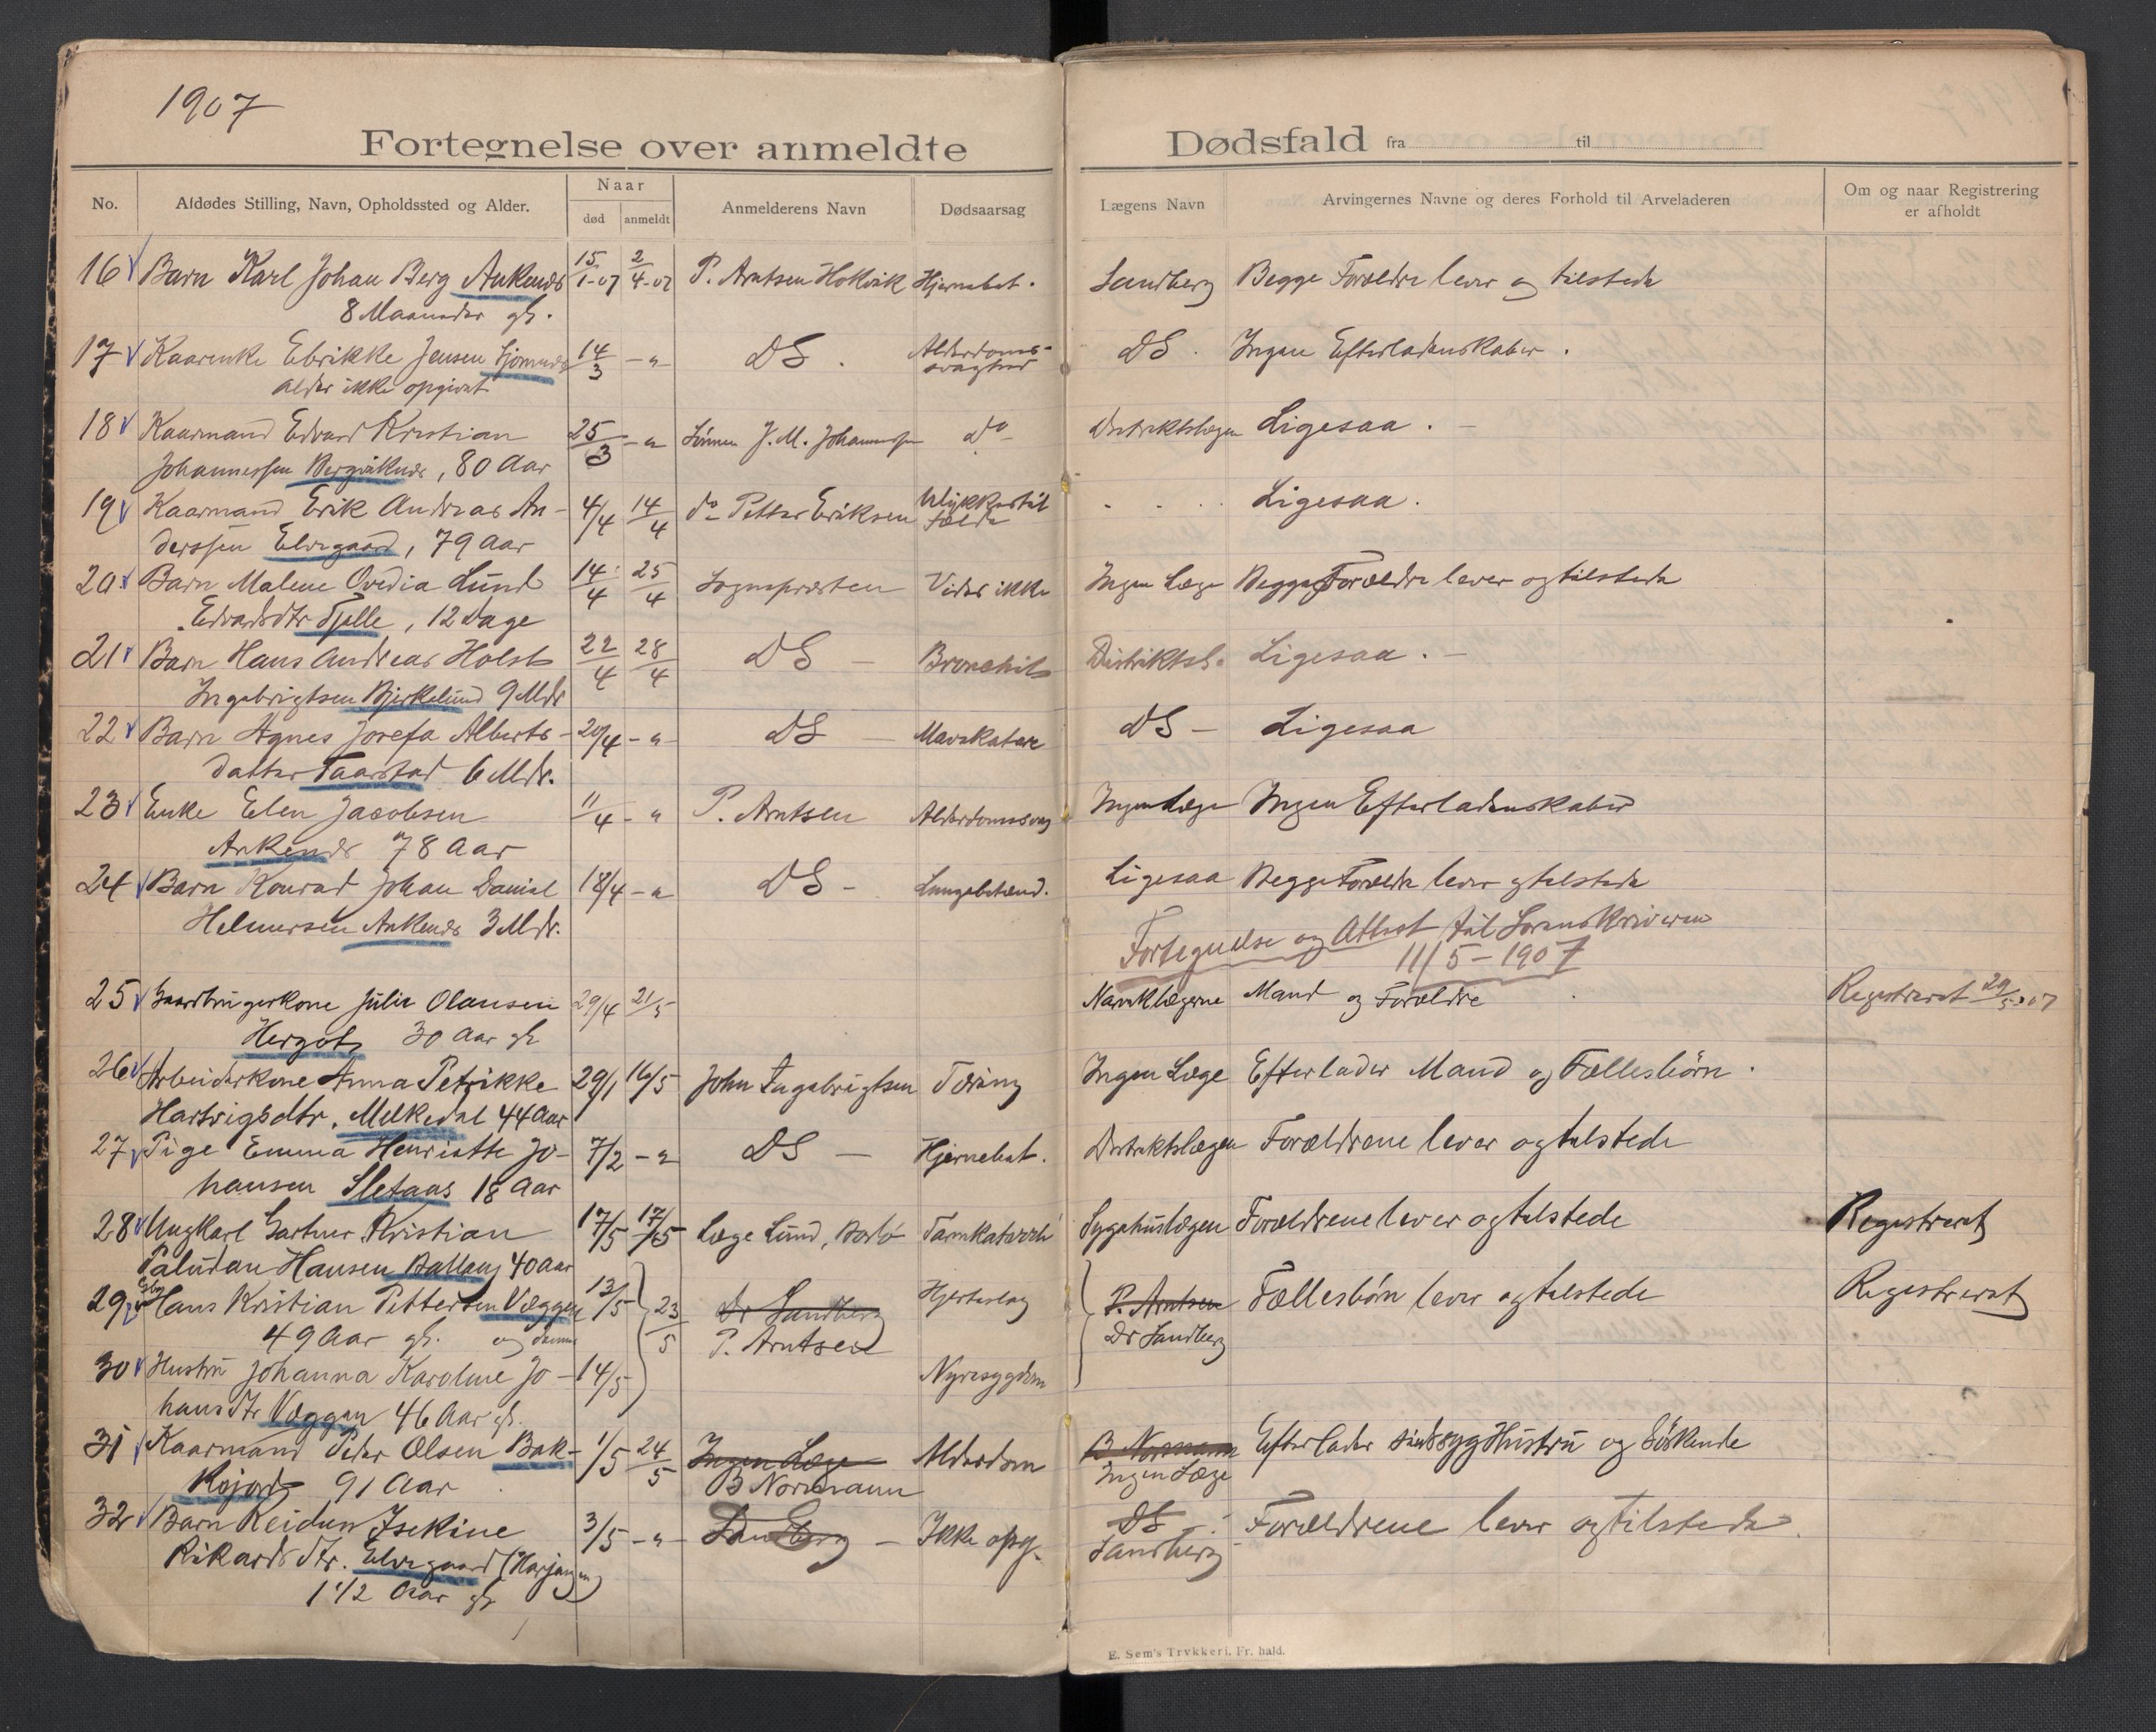 1907
Fortegnelse over anmeldte Dødsfald fra til
No. Afdødes Stilling, Navn, Opholdssted og Alder. Naar død anmeldt Anmelderens Navn Dødsaarsag Lægens Navn Arvingernes Navne og deres Forhold til Arveladeren Om og naar Registrering er afholdt
16 Barn Karl Johan Berg Ankenes 15/1-07 2/4-07 P. Arntsen Hjernebet. Sandberg Begge Forældre lever og tilstede
8 Maaneder gl.
17 Kaarenke Elrikke Jensen 14/3 - " - DS. Alderdoms- DS. Ingen Efterladenskaber.
alder ikke opgivet svaghed
18 Kaarmand Edvard Kristian 25/3 - " Sönnen J. M. Johannessen Do Distriktslægen Ligesaa. -
Johannessen Bergviknes, 80 Aar
19 Kaarmand Erik Andreas An- 4/4 14/4 do Petter Eriksen Ulykkestil- . . . Ligesaa.
derssen Elvegaard, 79 Aar fælde
20 Barn Malene Ovedia Lund 14/4 25/4 Sognepræsten Vides ikke Ingen Læge Begge Forældre lever og tilstede
Edvardsdtr Tjelle, 12 Dage
21 Barn Hans Andreas Holst 22/4 28/4 DS - Bronchit Distriktsl. Ligesaa. -
Ingebrigtsen Bjerkelund 9 Mdr
22 Barn Agnes Josefa Alberts- 20/4 - " - DS - Mavekatarr DS - Ligesaa
datter Taarstad 6 Mdr.
23 Enke Elen Jacobsen 11/4 - " P. Arntsen Alderdomssvag Ingen Læge Ingen Efterladenskaber
Ankenes 78 Aar
24 Barn Konrad Johan Daniel 18/4 - " DS - Lungebetænd. Ligesaa Begge Forældre lever og tilstede
Helmersen Ankenes 3 Mdr.
Fortegnelse og Attest til Sorenskriveren
11/5 - 1907
25 Gaardbrugerkone Julie Olausen 29/4 21/5 Narviklægerne Mand og Forældre Registreret 29/5 07
Hergot 30 Aar gl
26 Arbeiderkone Anna Petrikke 29/1 16/5 John Ingebrigtsen Tæring Ingen Læge Efterlader Mand og Fællesbörn.
Hartvigsdtr. Melkedal 44 Aar
27 Pige Emma Henriette Jo- 7/2 - " DS - Hjernebet. Distriktslægen Forældrene lever og tilstede
hansen Sletaas 18 Aar
28 Ungkarl Gartner Kristian 17/5 17/5 Læge Lund, Bodö Tarmkatarrh Sygehuslægen Forældrene lever og tilstede Registreret
Paludan Hansen Ballang 40 Aar
29 Hans Kristian Pettersen Væggen 13/5 23/5 Dr Sandberg Hjerteslag P. Arntsen Fællesbörn lever og tilstede Registreret
49 Aar gl. og dennes P. Arntsen Dr Sandberg
30 Hustru Johanna Karoline Jo- 14/5 Nyresygdom
hansdtr Væggen 46 Aar gl.
31 Kaarmand Peder Olsen Bak- 1/5 24/5 Ingen Læge Alderdom B Normann Efterlader sindssyg Hustru og Söskende
Kejord 91 Aar B Normann Ingen Læge
32 Barn Reidun Isekine 3/5 - " - Sandberg - Ikke opg. DS - Forældrene lever og tilstede.
Rikardsdtr. Elvegaard (Harjangen) Sandberg
1 1/2 Aar gl
E. Sem's Trykkeri, Fr. hald.